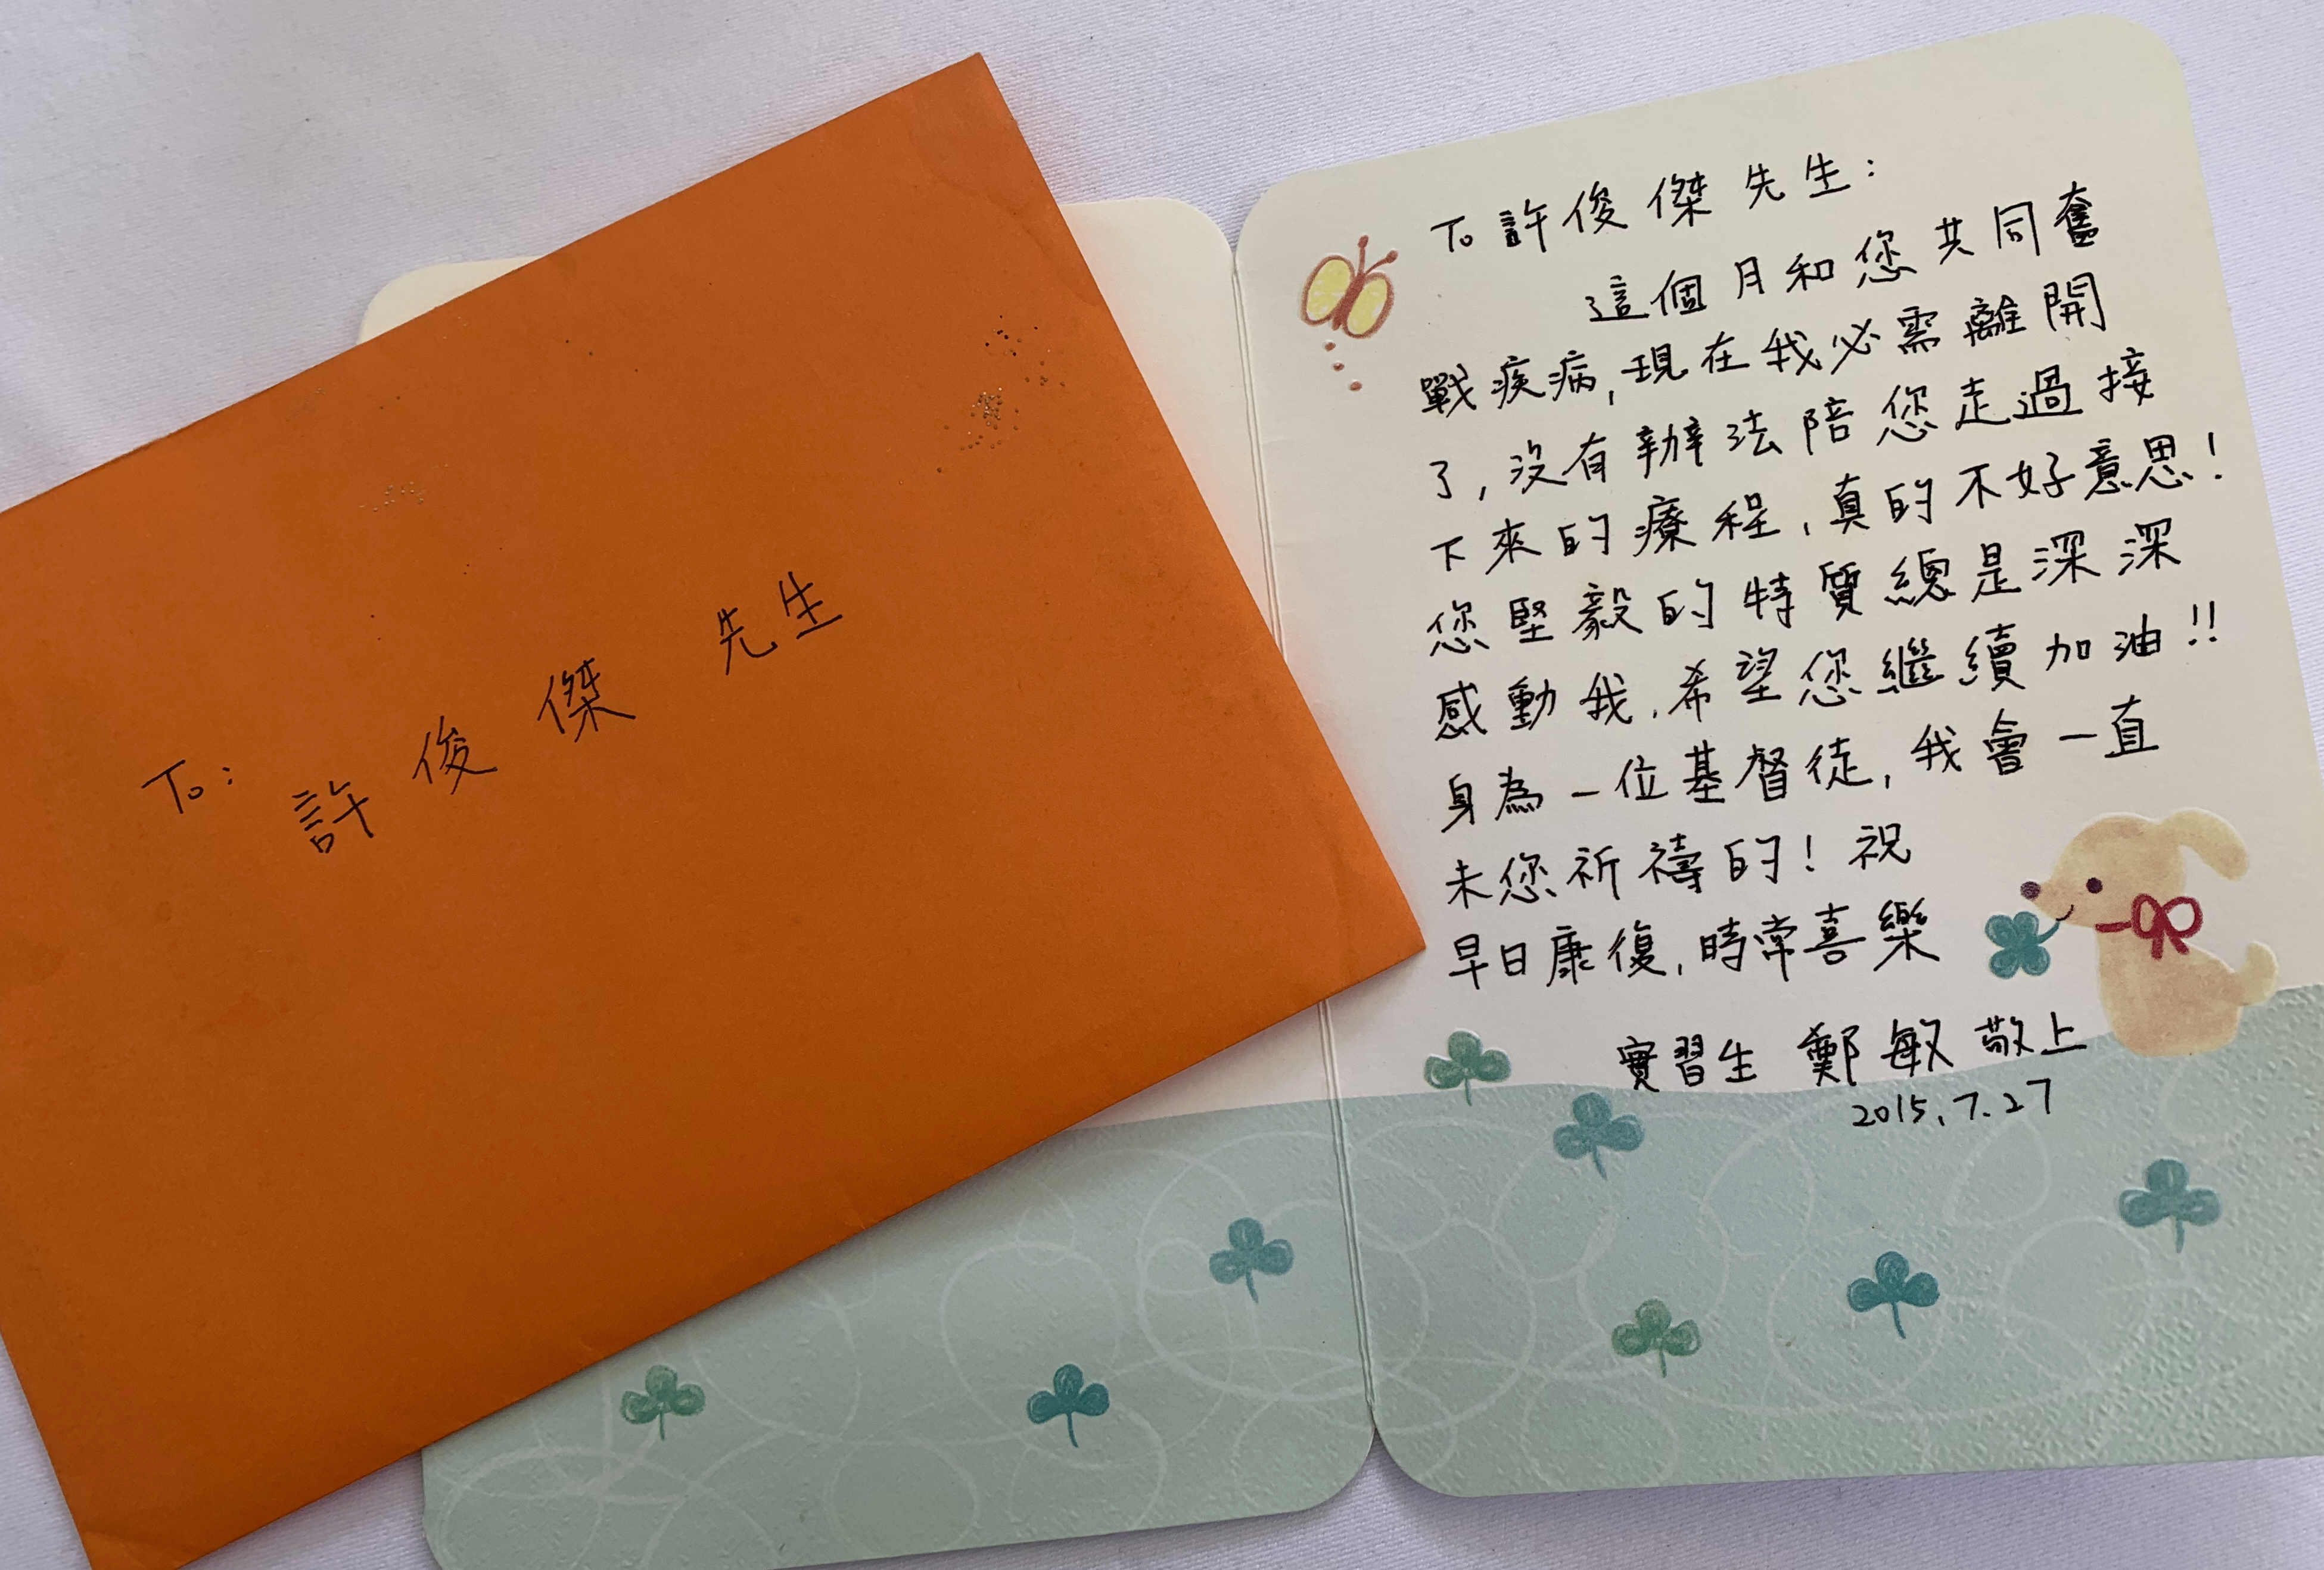 To:
許俊傑 先生
To 許俊傑先生:
這個月和您共同奮
戰疾病,現在我必需離開
了,沒有辦法陪您走過接
下來的療程,真的不好意思!
您堅毅的特質總是深深
感動我,希望您繼續加油!!
身為一位基督徒,我會一直
未您祈禱的!祝
早日康復,時常喜樂
實習生 鄭敏敬上
2015.7.27